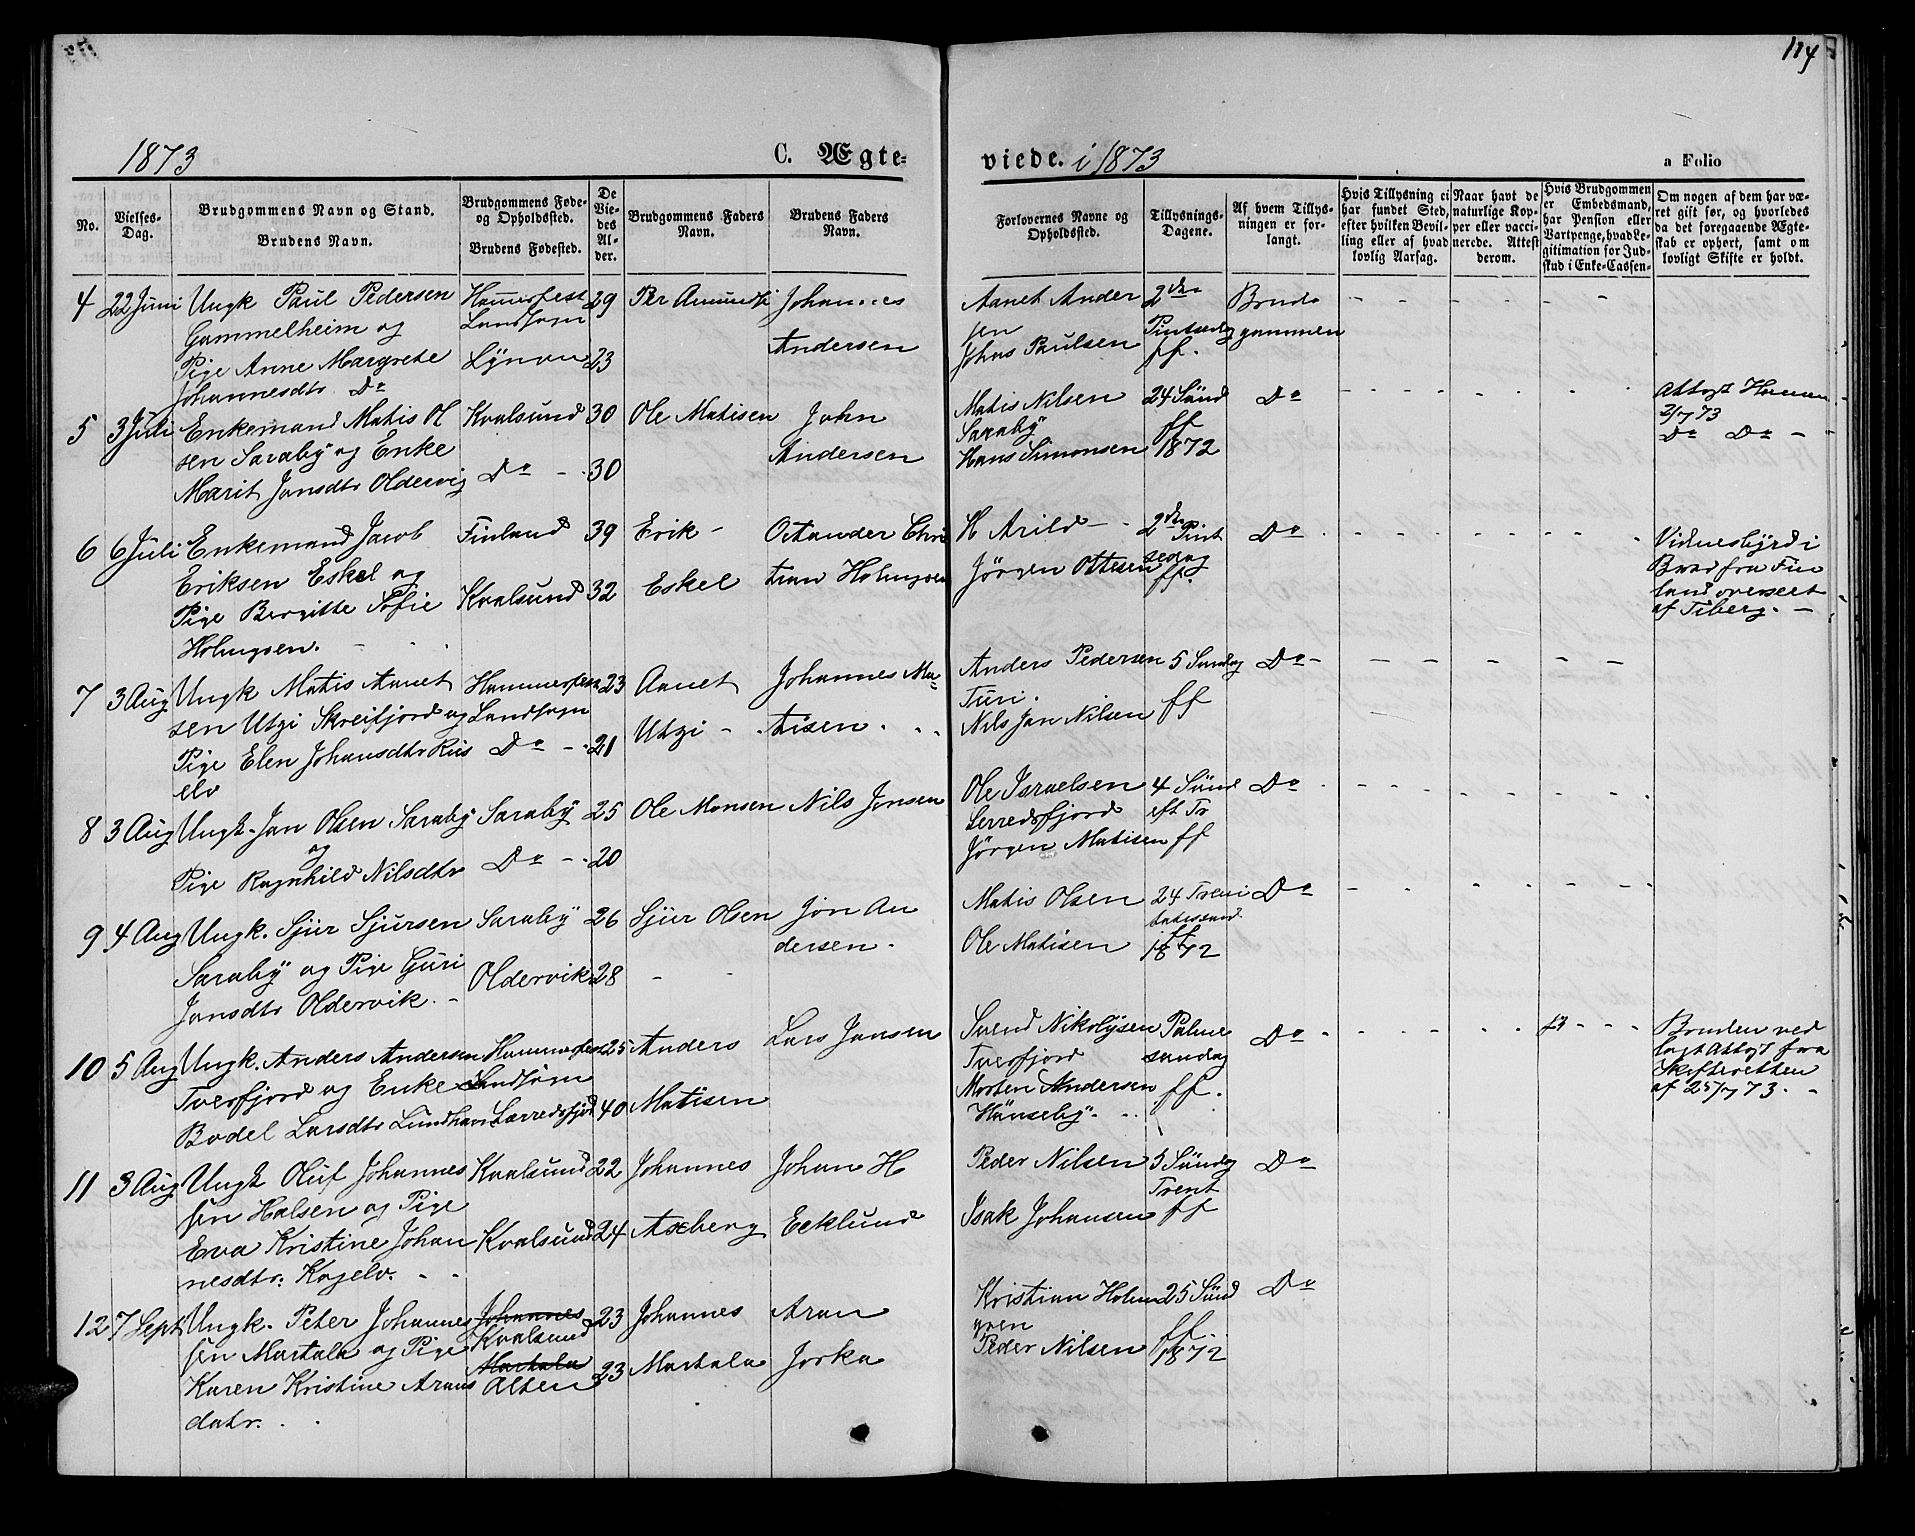 114
1873
C. Ægte-
viede. i 1873
a Folio
No.
Vielses-
Dag.
Brudgommens Navn og Stand.
Brudens Navn.
Brudgommens Føde-
og Opholdssted.
Brudens Fødested.
De
Vie-
des
Al-
der.
Brudgommens Faders
Navn.
Brudens Faders
Navn.
Forlovernes Navne og
Opholdssted.
Tillysnings-
Dagene.
Af hvem Tillys-
ningen er for-
langt.
Hvis Tillysning ei
har fundet Sted,
efter hvilken Bevil-
ling eller af hvad
lovlig Aarsag.
Naar havt de
naturlige Kop-
per eller vacci-
nerede. Attest
derom.
Hvis Brudgommen
er Embedsmand,
har Pension eller
Vartpenge, hvad Le-
gitimation for Ind-
skud i Enke-Cassen-
Om nogen af dem har væ-
ret gift før, og hvorledes
da det foregaaende Ægte-
skab er ophørt, samt om
lovligt Skifte er holdt.
4 22 Juni Ungk Paul Pedersen
Gammelheim og
Pige Anne Margrete
Johannesdtr Do
Hamerfest
Landsogn
29
23
Per Amundsi
Johannes
Andersen
Aanet Ander
sen
Johns Paulsen
2den
ff.
Brud
gommen
5 3 Juli Enkemand Matis Ol
sen Saraby og Enke
Marit Jonsdtr Oldervig
Kvalsund
Do
30
30
Ole Matisen
John
Andersen
Matis Nilsen
Saraby
Hans Simonsen
24 Sünd
ff
1872
Do
2/7 73
Do Do -
6 6 Juli Enkemand Jacob
Eriksen Eskel og
Pige Bergitte Sofie
Holmgsen.
Finland
Kvalsund
39
32
Erik -
Eskel
H Arild -
Jørgen Ottesen
2den Pint
sedag
ff.
Do
Vidnesbyrd i
fra Fin
land overseet
af Tiberg. -
7 3 Aug Ungk Matis Aanet
sen Utzi Skreifjord og
Pige Elen Johansdtr Ris
elv
Hammerfest
Landsogn
Do
23
21
Aanet
Utzi -
Johannes Ma-
tisen.
Anders Pedersen
Turi.
Nils Jan Nilsen
5 Sündag
ff
Do -
8 3 Aug Ungk. Jan Olsen Saraby
og
Pige Ragnhild Nilsdtr
Saraby
Do
25
20
Ole Monsen
Nils Jonsen
Ole Israelsen
Lerredsfjord
Jørgen Matisen
4 Sünd
eft Tr
ff
Do
9 4 Aug Ungk. Sjur Sjursen
Saraby og Pige Guri
Jonsdtr Oldervik. -
Saraby
Oldervik
26
28
Sjur Olsen
Jon An
dersen.
Matis Olsen
Ole Matisen
24 Treni
tatissund
ff
1872
Do
10 5 Aug Ungk. Anders Andersen
Tverfjord og Enke
Bodel Larsdtr Lundhavn
Hammerfest
Landsogn
Lærredsfjord
25
40
Anders
Matisen
Lars Jansen
Svend Nikolysen
Tverfjord
Morten Andersen
Hönseby.
Palme
sundag
ff.
Do
Bruden ved
lagt Attest fra
Skifteretten
af 25/7 73. -
11 3 Aug Ungk Oluf Johannes
sen Halsen og Pige
Eva Kristine Johan
nesdtr. Kogelv.
Kvalsund
Kvalsund
22
24
Johannes
Axberg
Johan H
Ecklund
Peder Nilsen
Isak Johansen
3 Sündag
Trent
ff
Do
12 7 Sept Ungk. Peter Johannes
sen Martala og Pige
Karen Kristine Arans
datr.
Johannes
Kvalsund
Martala
Alten
23
23
Johannes
Martala
Aran
Jorka
Kristian Holm
gren
Peder Nilsen
25 Sünd
ff.
1872
Do